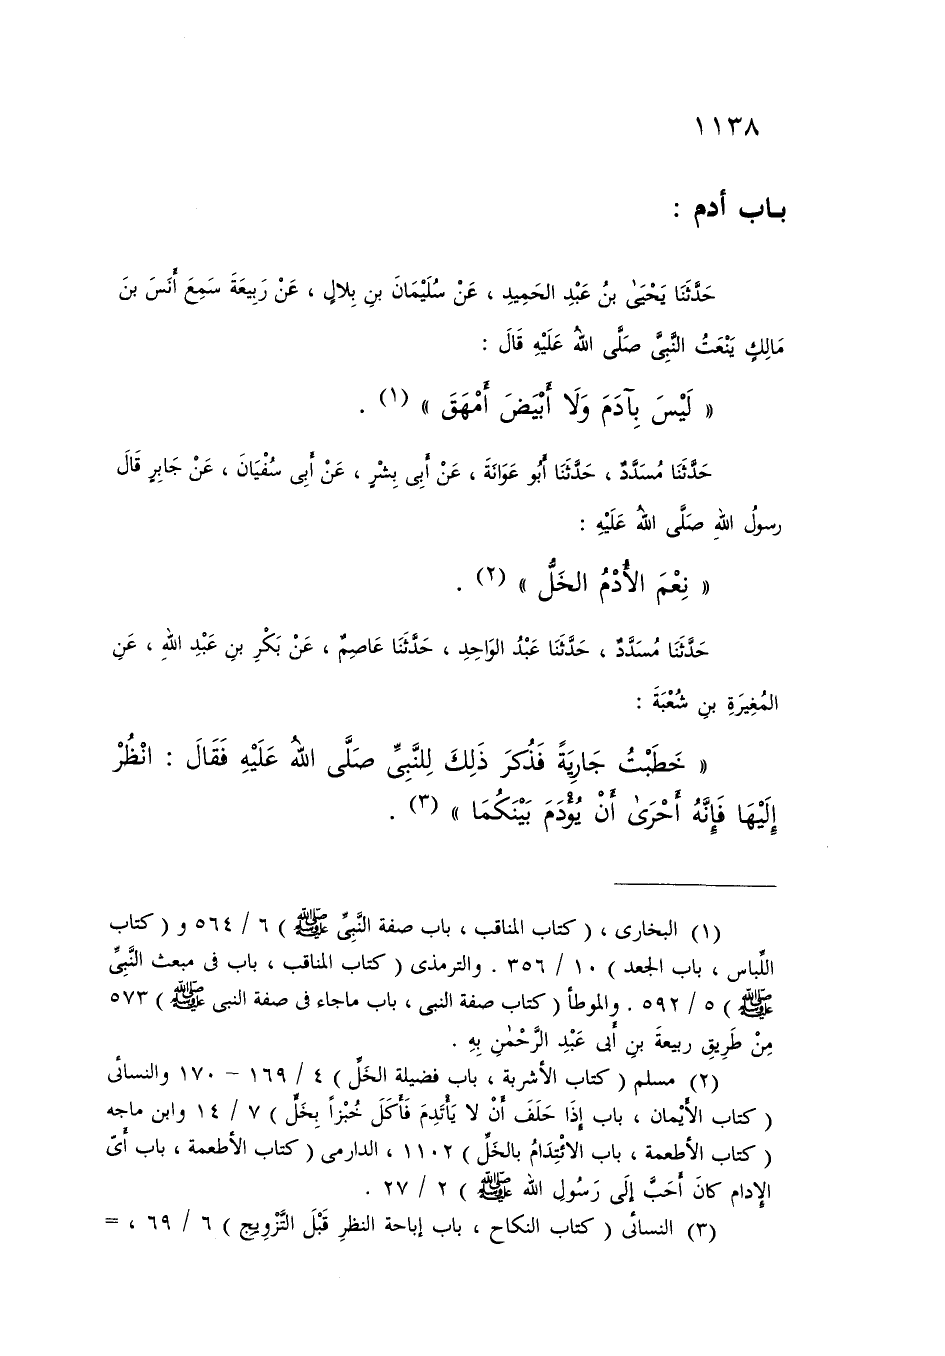 ١١٣٨
بـاب أدم :
حَدَّثَنَا يَحْيَىٰ بنُ عَبْدِ الحَمِيدِ ، عَنْ سُلَيْمَانَ بنِ بِلالٍ ، عَنْ رَبِيعَةَ سَمِعَ أَنَسَ بنَ
مَالِكٍ يَنْعَتُ النَّبِىَّ صَلَّى اللهُ عَلَيْهِ قَالَ :
« لَيْسَ بِآدَمَ وَلَا أَبْيَضَ أَمْهَقَ » (١) .
حَدَّثَنَا مُسَدَّدٌ ، حَدَّثَنَا أَبُو عَوَانَةَ ، عَنْ أَبِى بِشْرٍ ، عَنْ أَبِى سُفْيَانَ ، عَنْ جَابِرٍ قَالَ
رسولُ اللهِ صَلَّى اللهُ عَلَيْهِ :
« نِعْمَ الأُدْمُ الخَلُّ » (٢) .
حَدَّثَنَا مُسَدَّدٌ ، حَدَّثَنَا عَبْدُ الوَاحِدِ ، حَدَّثَنَا عَاصِمٌ ، عَنْ بَكْرِ بنِ عَبْدِ اللهِ ، عَنِ
المُغِيرَةِ بنِ شُعْبَةَ :
« خَطَبْتُ جَارِيَةً فَذُكِرَ ذَلِكَ لِلنَّبِىِّ صَلَّى اللهُ عَلَيْهِ فَقَالَ : انْظُرْ
إِلَيْهَا فَإِنَّهُ أَحْرَىٰ أَنْ يُؤْدَمَ بَيْنَكُمَا » (٣) .
(١) البخارى ، ( كتاب المناقب ، باب صفة النَّبِىِّ ﷺ ) ٦ / ٥٦٤ و ( كتاب
اللِّباس ، باب الجعد ) ١٠ / ٣٥٦ . والترمذى ( كتاب المناقب ، باب فى مبعث النَّبِىِّ
ﷺ ) ٥ / ٥٩٢ . والموطأ ( كتاب صفة النبى ، باب ماجاء فى صفة النبى ﷺ ) ٥٧٣
مِنْ طَرِيقِ ربيعةَ بنِ أَبى عَبْدِ الرَّحْمٰنِ بِهِ .
(٢) مسلم ( كتاب الأشربة ، باب فضيلة الخَلِّ ) ٤ / ١٦٩ - ١٧٠ والنسائى
( كتاب الأَيْمان ، باب إِذَا حَلَفَ أَنْ لا يَأْتَدِمَ فَأَكَلَ خُبْزاً بِخَلٍّ ) ٧ / ١٤ وابن ماجه
( كتاب الأطعمة ، باب الائْتِدَامُ بالخَلِّ ) ١١٠٢ ، الدارمى ( كتاب الأطعمة ، باب أَىّ
الإِدام كانَ أَحَبَّ إِلَى رَسُولِ الله ﷺ ) ٢ / ٢٧ .
(٣) النسائى ( كتاب النكاح ، باب إباحة النظرِ قَبْلَ التَّزْوِيجِ ) ٦ / ٦٩ ، =